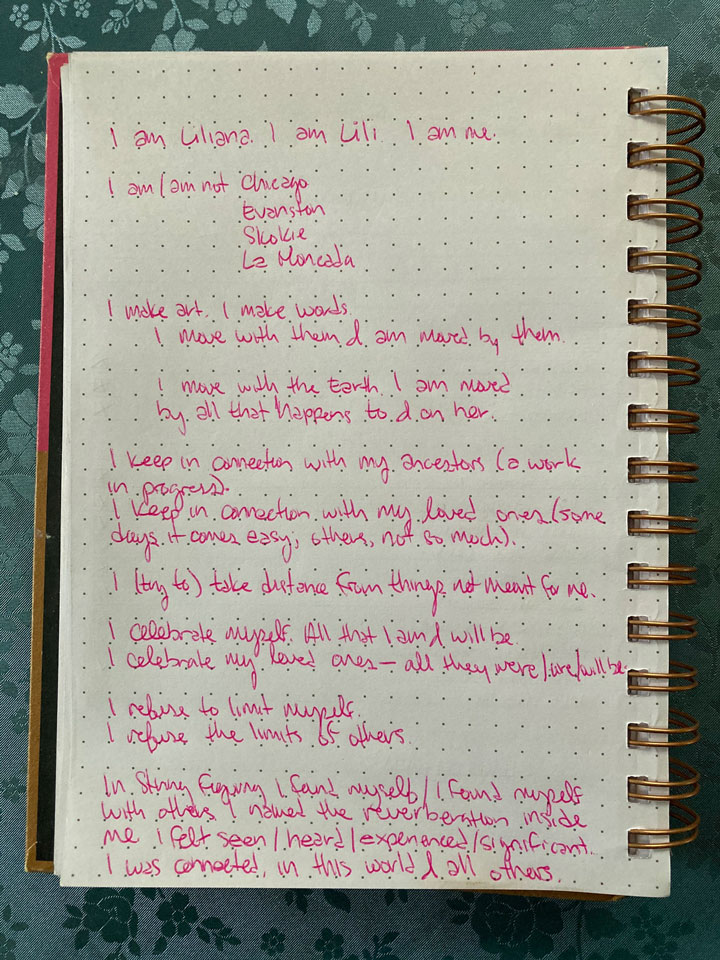 I am Liliana. I am Lili. I am me.
I am/am not Chicago
Evanston
Skokie
La Moncada
I make art. I make words.
I move with them & am moved by them.
I move with the Earth. I am moved
by all that happens to & on her.
I keep in connection with my ancestors (a work
in progress).
I keep in connection with my loved ones (some
days it comes easy, others, not so much).
I (try to) take distance from things not meant for me.
I celebrate myself. All that I am & will be.
I celebrate my loved ones — all they were/are/will be.
I refuse to limit myself.
I refuse the limits of others.
In String Figuring I found myself/I found myself
with others. I named the reverberation inside
me. I felt seen/heard/experienced/significant.
I was connected, in this world & all others.